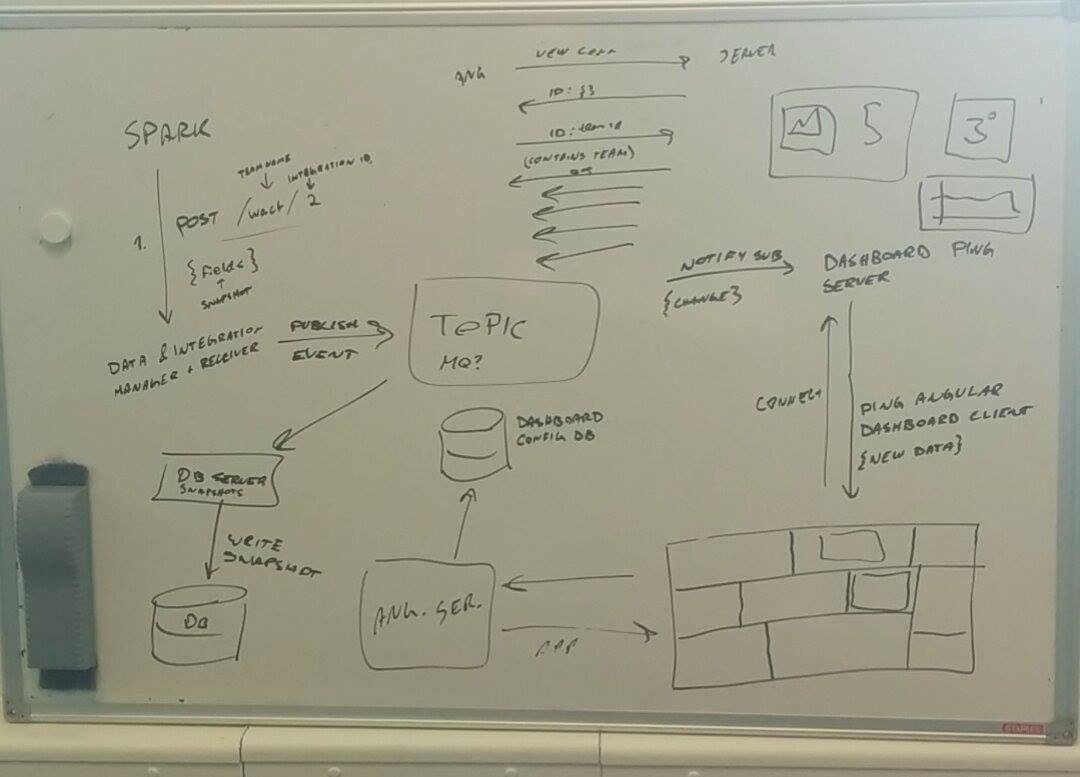 NEW CONN
ANG
SERVER
ID: {}
ID: team id
(CONTAINS TEAM)
SPARK
TEAM NAME
INTEGRATION ID
1.
POST /wact/2
{fields}
SNAPSHOT
5
3°
DATA & INTEGRATION
MANAGER + RECEIVER
PUBLISH
EVENT
TOPIC
MQ?
NOTIFY SUB
{CHANGE}
DASHBOARD PING
SERVER
CONNECT
PING ANGULAR
DASHBOARD CLIENT
{NEW DATA}
DASHBOARD
CONFIG DB
DB SERVER
SNAPSHOTS
WRITE
SNAPSHOT
DB
ANG. SER.
APP
STAPLES